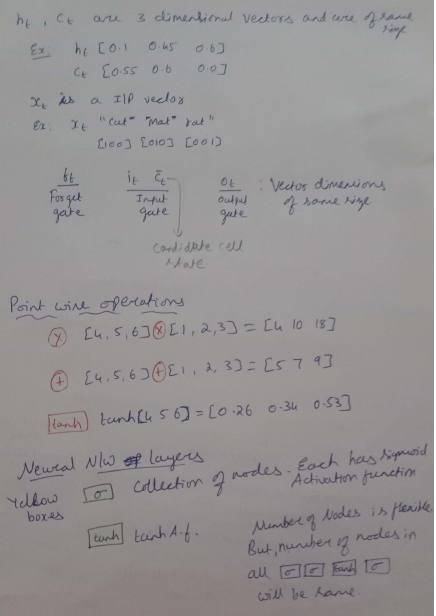 ht, Ct are 3 dimensional vectors and are of same size
Ex: ht [0.1 0.45 0.6]
Ct [0.55 0.6 0.0]
xt is a I/P vector
Ex: xt "Cat" "Mat" rat"
[100] [010] [001]
ft it C̄t Ot : Vector dimensions
Forget gate Input gate output gate of same size
Candidate cell
state
Point wise operations
(×) [4, 5, 6] (×) [1, 2, 3] = [4 10 18]
(+) [4, 5, 6] (+) [1, 2, 3] = [5 7 9]
tanh tanh [4 5 6] = [0.26 0.34 0.53]
Neural N/W layers
Yellow boxes σ Collection of nodes. Each has sigmoid
Activation function
tanh tanh A.f.
Number of Nodes is flexible.
But, number of nodes in
all σ σ tanh σ
will be same.